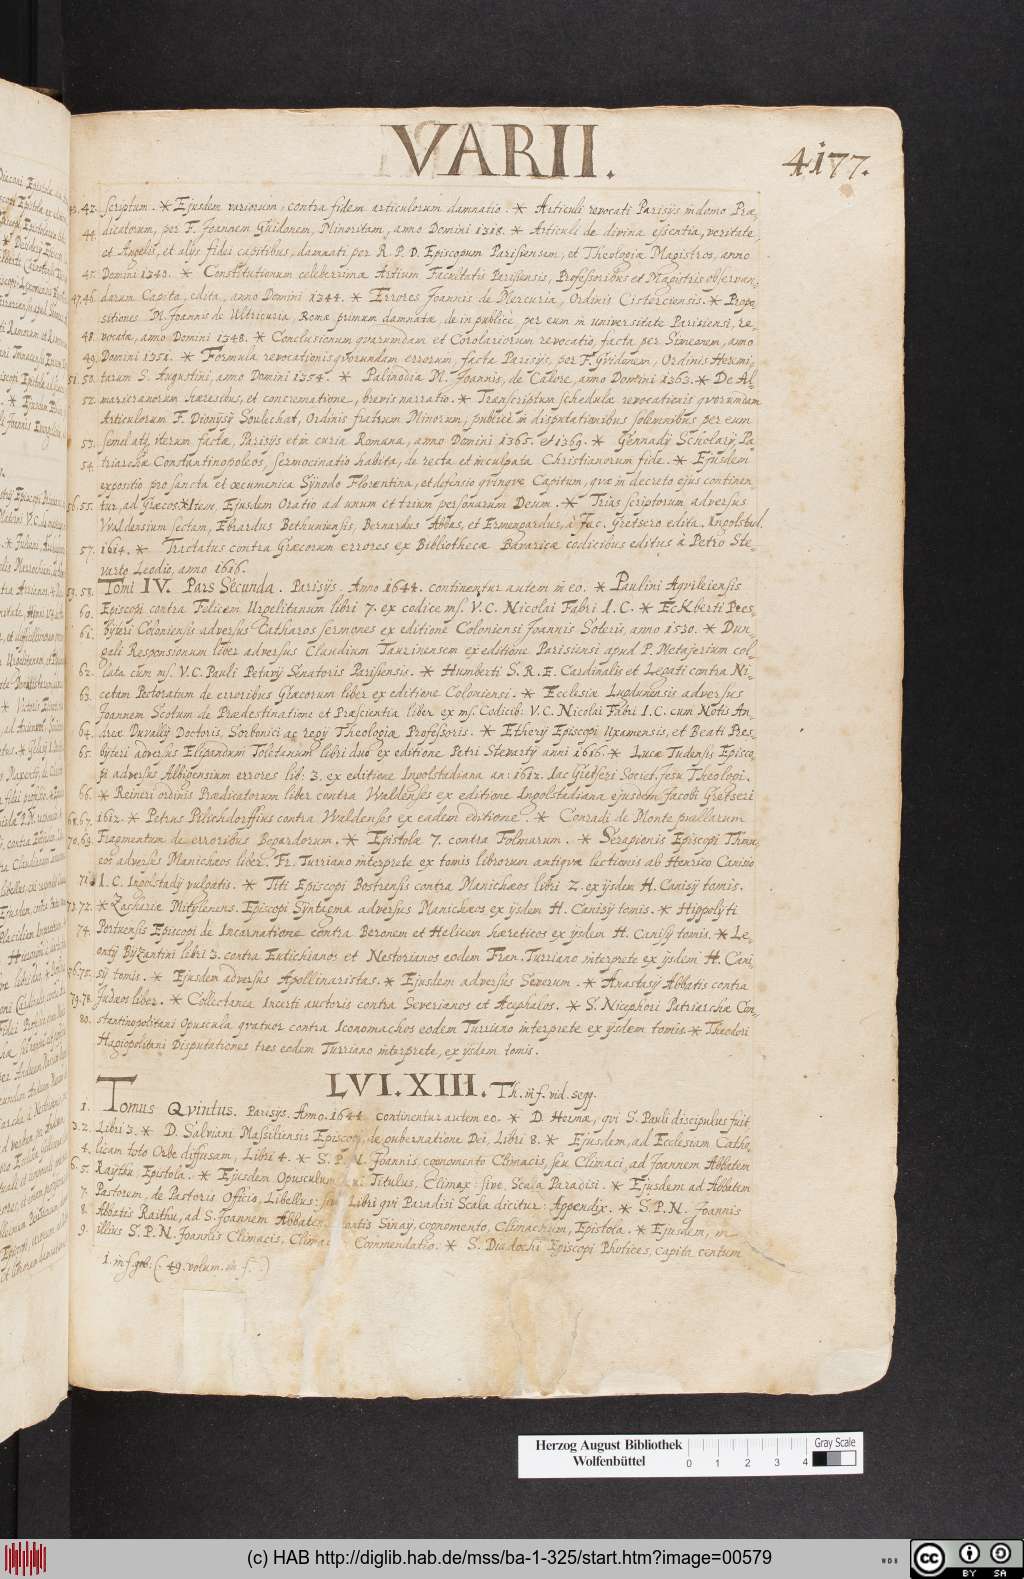 VARII.
4177.
43. 42. scriptum. * Ejusdem variorum, contra fidem articulorum damnatio. * Articuli revocati Parisijs in domo Præ-
44. dicatorum, per F. Joannem Guidonem, Minoritam, anno Domini 1318. * Articuli de divina essentia, veritate,
et Angelis, et alijs fidei capitibus, damnati per R. P. D. Episcopum Parisiensem, et Theologiæ Magistros, anno
45. Domini 1340. * Constitutionum celeberrimæ Artium Facultatis Parisiensis, Professoribus et Magistris observan-
47. 46. darum Capita, edita, anno Domini 1344. * Errores Joannis de Mercuria, Ordinis Cisterciensis. * Propo-
sitiones M. Joannis de Ultricuria, Romæ primum damnatæ, de in publicè per eum in universitate Parisiensi, re-
48. vocatæ, anno Domini 1348. * Conclusionum quarumdam et Corolariorum revocatio, facta per Simeonem, anno
49. Domini 1351. * Formula revocationis quorundam errorum, facta Parisijs, per F. Gvidonem, Ordinis Heremi-
51. 50. tarum S. Augustini, anno Domini 1354. * Palinodia M. Joannis, de Calore, anno Domini 1363. * De Al-
52. maricranorum hæresibus, et concrematione, brevis narratio. * Transcriptum schedulæ revocationis qvorumdam
Articulorum F. Dionysij Soulechat, Ordinis fratrum Minorum, publicè in disputationibus solemnibus per eum
53. semel atq iterum factæ, Parisijs et in curia Romana, anno Domini 1365. et 1369. * Gennadij Scholarij, Pa
54. triarchæ Constantinopoleos, sermocinatio habita, de recta et inculpata Christianorum fide. * Ejusdem
expositio pro sancta et œcumenica Synodo Florentina, et defensio qvinqve Capitum, qvæ in decreto ejus continen
56. 55. tur, ad Græcos. * Item, Ejusdem Oratio ad unum et trium personarum Deum. * Trias scriptorum adversus
Waldensium sectam, Ebrardus Bethuniensis, Bernardus Abbas, et Ermengardus, à Jac. Gretsero edita, Ingolstad.
57. 1614. * Tractatus contra Græcorum errores ex Bibliothecæ Bavaricæ codicibus editus à Petro Ste-
varto Leodio, anno 1616.
59. 58. Tomi IV. Pars Secunda. Parisijs. Anno 1644. continentur autem in eo. * Paulini Aqvileiensis
60. Episcopi contra Felicem Urgelitanum libri 7. ex codice ms. V. C. Nicolai Fabri I. C. * Eckberti Pres-
61. byteri Coloniensis adversus Catharos sermones ex editione Coloniensi Joannis Soteris, anno 1530. * Dun-
gali Responsionum liber adversus Claudium Taurinensem ex editione Parisiensi apud P. Metaserium col
62. lata cum ms. V. C. Pauli Petavij Senatoris Parisiensis. * Humberti S. R. E. Cardinalis et Legati contra Ni-
63. cetam Pectoratum de erroribus Græcorum liber ex editione Coloniensi. * Ecclesia Lugdunensis adversus
Joannem Scotum de Prædestinatione et Præscientia liber ex ms. Codicib: V. C. Nicolai Fabri I. C. cum Notis An-
64. dreæ Duvallij Doctoris, Sorbonici ac regij Theologiæ Professoris. * Etherij Episcopi Uxamensis, et Beati Pres-
65. byteri adversus Elipandum Toletanum libri duo ex editione Petri Stevartij anni 1616. * Lucæ Tudensis Episco-
pi adversus Albigensium errores lib: 3. ex editione Ingolstadiana an: 1612. Iac Gretseri Societ. Jesu Theologi.
66. * Reineri ordinis Prædicatorum liber contra Waldenses ex editione Ingolstadiana ejusdem Jacobi Gretseri
68. 67. 1612. * Petrus Pilichdorffius contra Waldenses ex eadem editione. * Conradi de Monte puellarum
70. 69. Fragmentum de erroribus Begardorum. * Epistolæ 7. contra Folmarum. * Serapionis Episcopi Thmu-
eos adversus Manichæos liber. Fr. Turriano interprete ex tomis librorum antiqvæ lectionis ab Henrico Canisio
71. I. C. Ingolstadij vulgatis. * Titi Episcopi Bostrensis contra Manichæos libri 2. ex ijsdem H. Canisij tomis.
73. 72. * Zachariæ Mitylenens. Episcopi Syntagma adversus Manichæos ex ijsdem H. Canisij tomis. * Hippolyti
74. Portuensis Episcopi de Incarnatione contra Beronem et Helicem hæreticos ex ijsdem H. Canisij tomis. * Le-
ontij Byzantini libri 3. contra Eutichianos et Nestorianos eodem Fran. Turriano interprete ex ijsdem H. Cani-
76. 75. sij tomis. * Ejusdem adversus Apollinaristas. * Ejusdem adversus Severum. * Anastasij Abbatis contra
79. 78. Judæos liber. * Collectanea Incerti auctoris contra Severianos et Acephalos. * S. Nicephori Patriarchæ Con-
80. stantinopolitani Opuscula qvatuor contra Iconomachos eodem Turriano interprete ex ijsdem tomis. * Theodori
Hagiopolitani Disputationes tres eodem Turriano interprete, ex ijsdem tomis.
LVI. XIII. Th. in f. vid. seqq.
1. Tomus Qvintus. Parisijs. Anno 1644. continentur autem eo. * D. Hermæ, qvi S. Pauli discipulus fuit,
3. 2. Libri 3. * D. Salviani Massiliensis Episcopi, de gubernatione Dei, Libri 8. * Ejusdem, ad Ecclesiam Catho-
4. licam toto Orbe diffusam, Libri 4. * S. P. N. Joannis, cognomento Climacis, seu Climaci, ad Joannem Abbatem
6. 5. Raythu Epistola. * Ejusdem Opusculum Titulus, Climax: sive, Scala Paradisi. * Ejusdem ad Abbatem
7. Pastorum, de Pastoris Oficio, Libellus: Libri qvi Paradisi Scala dicitur: Appendix. * S. P. N. Joannis
8. Abbatis Raithu, ad S. Joannem Abbatem Sinaij, cognomento, Climachum, Epistola. * Ejusdem, in
9. illius S. P. N. Joannis Climacis, Commendatio. * S. Diadochi Episcopi Photices, capita centum
1. in f. (. 49. volum. in f. .)
Herzog August Bibliothek
Wolfenbüttel
0 1 2 3 4
Gray Scale
(c) HAB http://diglib.hab.de/mss/ba-1-325/start.htm?image=00579
WDB
cc BY SA